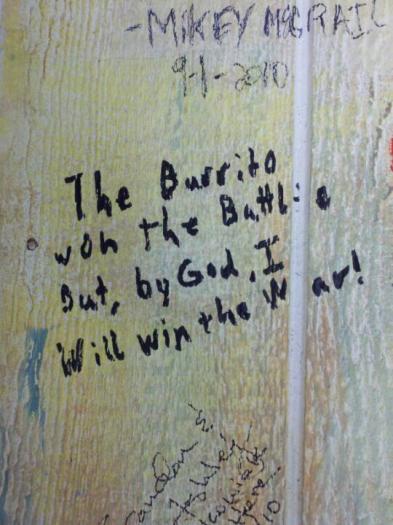 -MIKEY MCGRAIL
9-1-2010
The Burrito
won the Battle
But, by God, I
Will win the War!